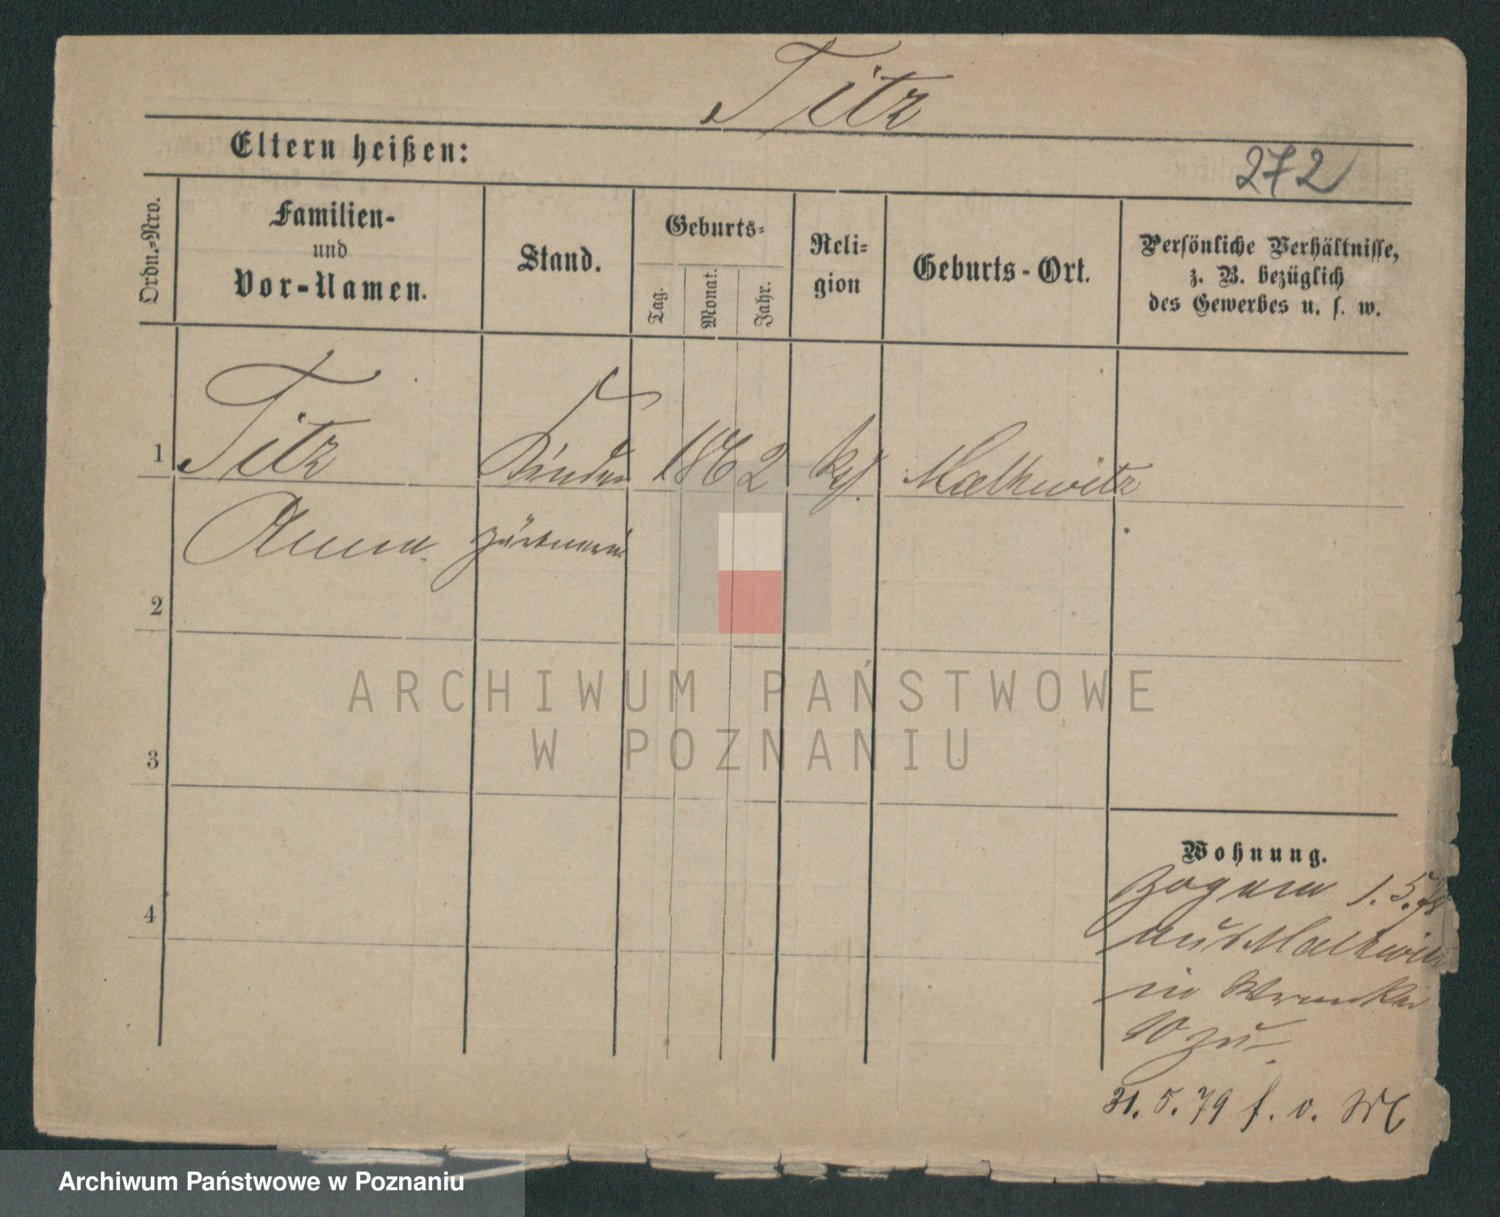 Titz
Eltern heißen:
272
Ordn.-Nro.
Familien-
und
Vor-Namen.
Stand.
Geburts-
Tag.
Monat.
Jahr.
Reli-
gion
Geburts-Ort.
Persönliche Verhältnisse,
z. B. bezüglich
des Gewerbes u. s. w.
1
Titz
Kinder
1862
Malkwitz
Anna
gärtnerin
2
3
4
Wohnung.
Zogen 1.5.78
aus Malkwitz
in
10 zu
31.5.79 f. v.
ARCHIWUM PAŃSTWOWE
W POZNANIU
Archiwum Państwowe w Poznaniu